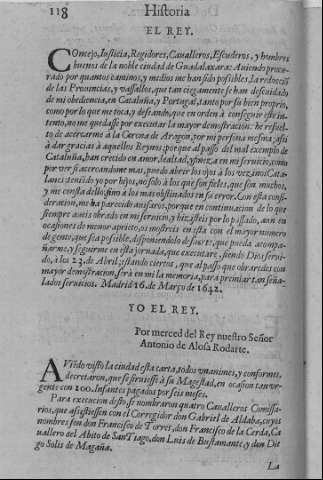 118 Historia
EL REY.
Concejo, Iusticia, Regidores, Caualleros, Escuderos, y hombres
buenos de la noble ciudad de Guadalaxara: Auiendo procu-
rado por quantos caminos, y medios me han sido posibles, la reducciō
de las Prouincias, y vassallos, que tan ciegamente se han descuidado
de mi obediencia, en Cataluña, y Portugal, tanto por su bien proprio,
como por lo que me toca, y deseando, que en orden à conseguir este in-
tento, no me quedasse por executar la mayor demostracion: he resuel-
to de acercarme à la Corona de Aragon, por mi persona mesma; assi
à dar gracias à aquellos Reynos; porque al passo del mal exemplo de
Cataluña, han crecido en amor, lealtad, y fineza, en mi seruicio, como
por ver si acercandome mas, puedo abrir los ojos à los vezinos Cata-
lanes, tenido yo por hijos, no solo à los que son fieles, que son muchos,
y me consta dellos, sino à los mas obstinados en su error. Con esta consi-
deracion, me ha parecido auisaros, porque en continuacion de lo que
siempre aueis obrado en mi seruicio, y hizisteis por lo passado, aun en
ocasiones de menor aprieto, os mostreis en esta con el mayor numero
de gente, que sea posible, disponiendolo de suerte, que pueda acompa-
ñarme, y seguirme en esta jornada, que executarè, siendo Dios serui-
do, à los 23. de Abril; estando ciertos, que al passo que obraredes con
mayor demostracion, serà en mi la memoria, para premiar tan seña-
lados seruicios. Madrid 16. de Março de 1642.
YO EL REY.
Por merced del Rey nuestro Señor
Antonio de Alosa Rodarte.
AViēdo visto la ciudad esta carta, todos vnanimes, y conformes,
decretaron, que se siruiesse à su Magestad, en ocasion tan vr-
gente con 100. Infantes pagados por seis meses.
Para execucion desto, se nombraron quatro Caualleros Comissa-
rios, que assistiessen con el Corregidor don Gabriel de Aldaba, cuyos
nombres son don Francisco de Torres, don Francisco de la Cerda, Ca-
uallero del Abito de SanTiago, don Luis de Bustamante, y don Die
go Solis de Magaña.
La